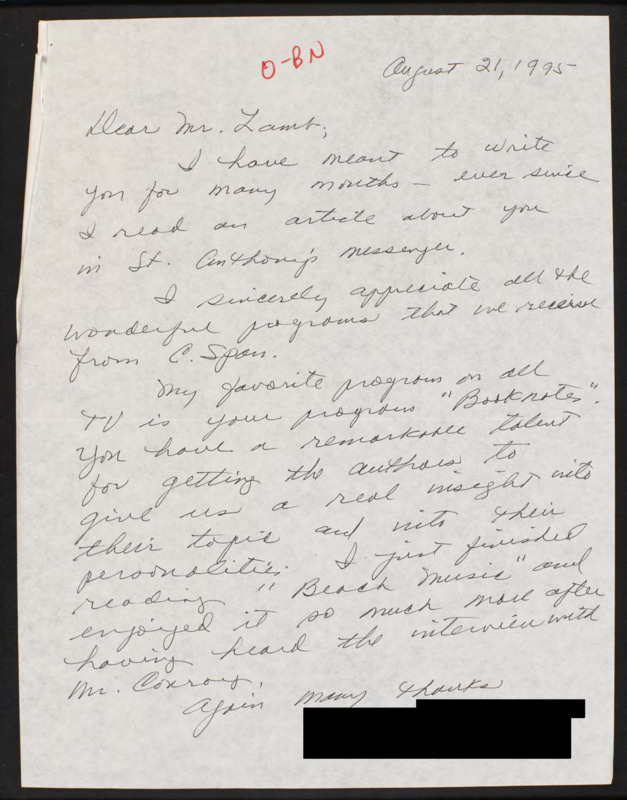 O-BN
August 21, 1995
Dear Mr. Lamb,
I have meant to write
you for many months — ever since
I read an article about you
in St. Anthony's messenger.
I sincerely appreciate all the
wonderful programs that we receive
from C. Span.
My favorite program on all
TV is your program "Booknotes".
You have a remarkable talent
for getting the authors to
give us a real insight into
their topic and into their
personalities. I just finished
reading "Beach Music" and
enjoyed it so much more after
having heard the interview with
Mr. Conroy.
Again many thanks